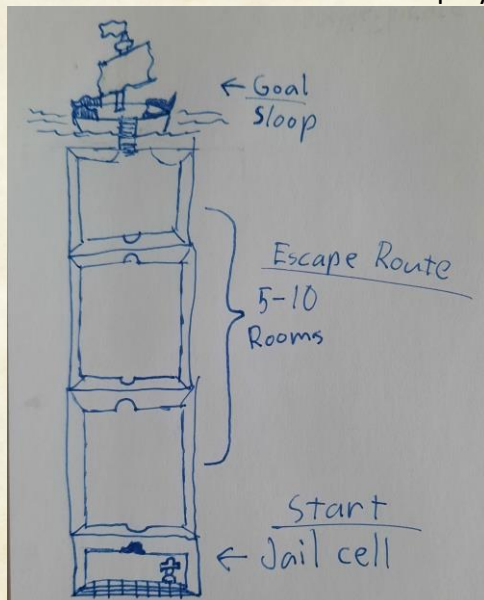 ← Goal
Sloop
Escape Route
5-10
Rooms
Start
← Jail cell